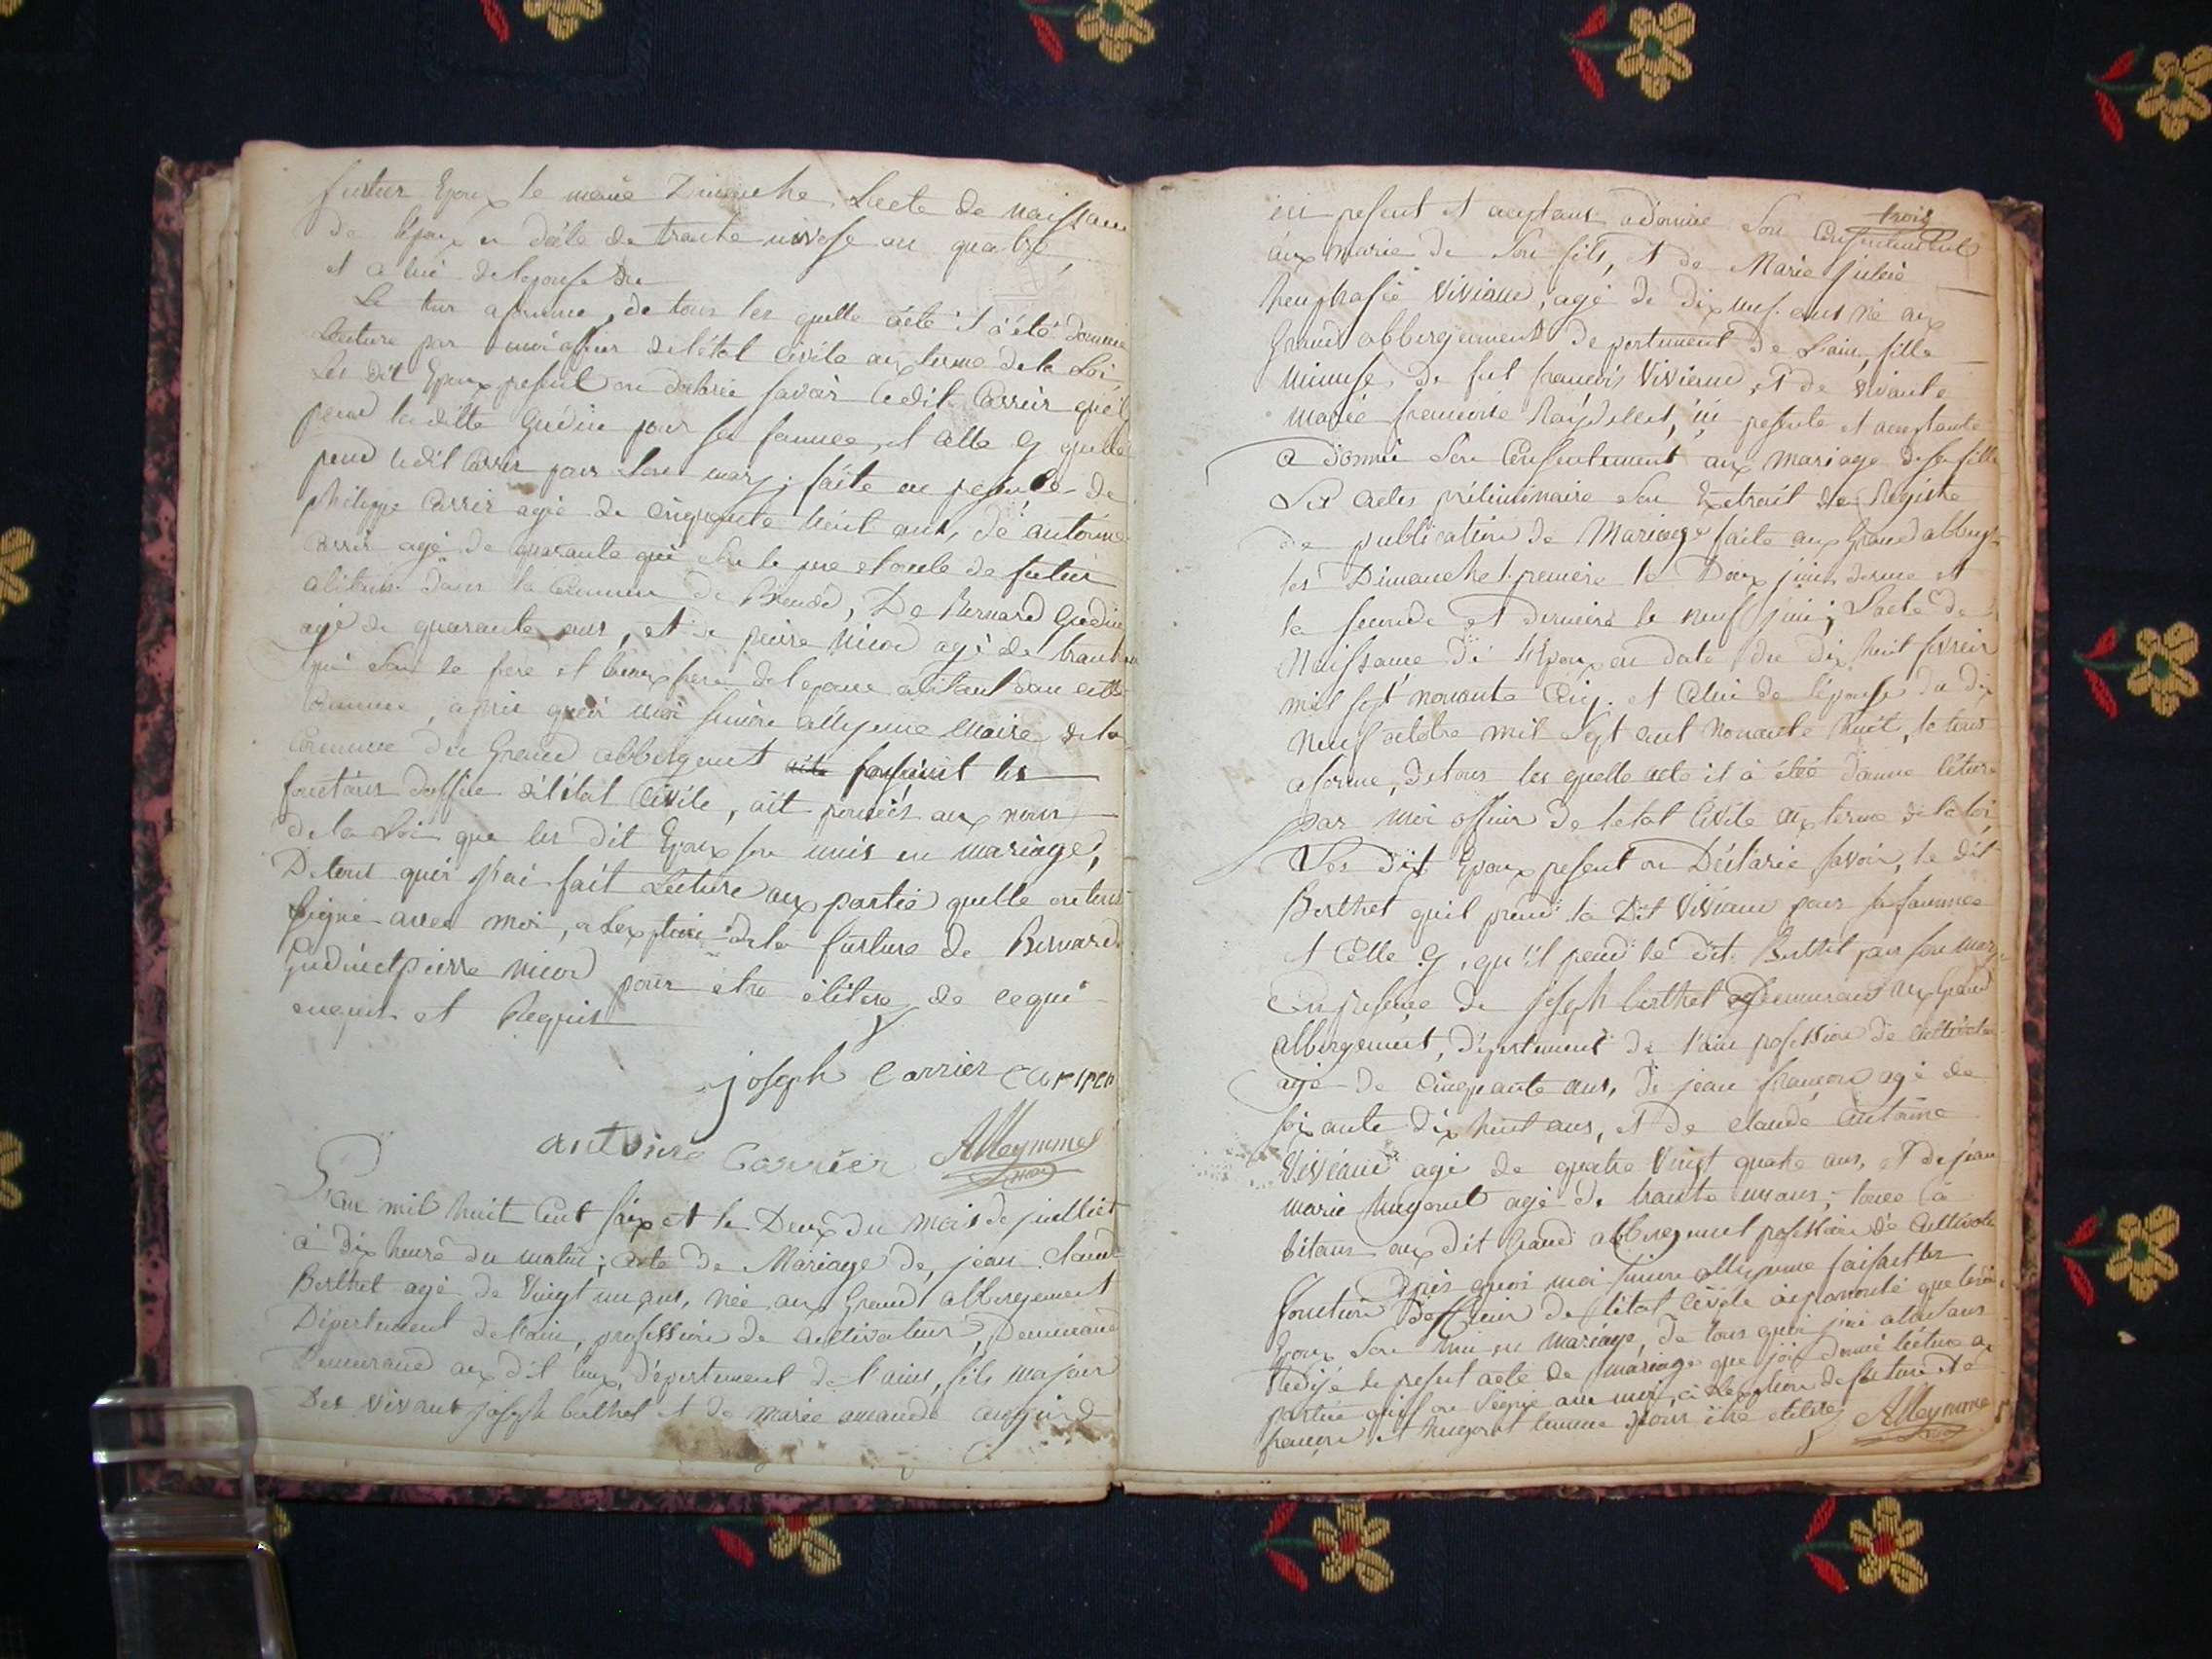 futur Epoux le meme Dimenche. Lacte de naissan
de l'Epoux en date de trante nivose an quatre
et celui de lepouse du
Le tous aforme, de tous les quelle acte il a été donne
lecture par moi officier de l'état civile aux terme de la Loi,
Les dit Epoux present on declaréé savoir ledit Carrier qu'il
prend la ditte Gudin pour sa famme, et celle cy quelle
prend ledit Carrier pour son mary; faite en presence de
philippe Carrier agé de cinquante huit ans, de antoine
Carrier agé de quarante qui son le pere et oncle de futur
abitans dans la Commune de , De Bernard Gudin
agé de quarante ans, et de peirre nicod agé de trante
qui son le frere et beaux frere de lepouse abitant dans cette
Commune, apres quoi moi Alleymme Maire de la
commune du Grand abbergement faisant les
fonctions d'officie d'él'état Civile, ait aux nom
de la Loi que les dit Epoux son unis en mariage,
De tout quoi j'ai fait Lecture aux partie quelle on tous
signé avec moi, a lexption de la future de Bernard
Gudin et pierre nicod pour etre élitere de ce qui
enquis et Requis
joseph Carrier carrier
antoine Carrier Alleymme
L'an mil huit Cent seix et le Deux du mois de juilliet
à dix heure du matin; acte de Mariage de, jean Claude
Berthet agé de Vingt un ans, née aux Grand abbergement
Département de l'ain, profession de cultivateur, Demeurand
Demeurand aux dit lieux, département de l'ain, fils majour
Des vivans joseph berthet et de marie amande
trois
ici present et aceptant a donnée Son Consentement
aux marie de Son fils, et de Marie julie
heuphrasie Viviand, agé de dix neuf ans né aux
Grand abbergement departement de Lain, fille
mineuse, De fut francois Viviand, et de vivante
marie francoise Raydellet, ici presente et aceptante
a donné Son Consentement aux mariage de sa fille
Les actes préliminaire son Extrait de Registe
de publication de Mariage faite aux Grand abberg
les Dimanche premiere le Deux juin derme et
la seconde et derniere le neuf juin; Lacte de
Naissance de l'Epoux en date du dix huit fevreir
mil sept nonante Cinq. et Celui de lépouse du dix
neuf octobre mil sept cent nonante huit, le tous
aforme, de tous les quelle acte il à étéé donne léture
par moi officier de letat Civile aux terme de la loi,
Les dit Epoux present on Déclarée savoir, le dit
Berthet quil prend la Dit Viviand pour sa famme
et Celle cy, qu'il prend le dit Berthet pour son mary
En presence de joseph berthet demeurant aux Grand
abbergement, département de l'ain profession de cultivateur
agé de cinquante ans, de jean françois agé de
soixante dix huit ans, et de claude antoine
Viviand agé de quatre Vingt quatre ans, et de jean
marie hugonet agé de trante un ans, tous à
bitans aux dit Grand abbergement profession de Cultivate
Apres quoi moi Alleymme faisait les
fonction d'officier de l'état civile ait prononcé que les dit
Epoux Son Uni en mariage, de tous quoi j'ai
Redijé le present acte de mariage que j'ai donné lecture aux
partie quil on signé avec moi, à lexption de future et de
françois et hugonet comme pour être elitere Alleymme